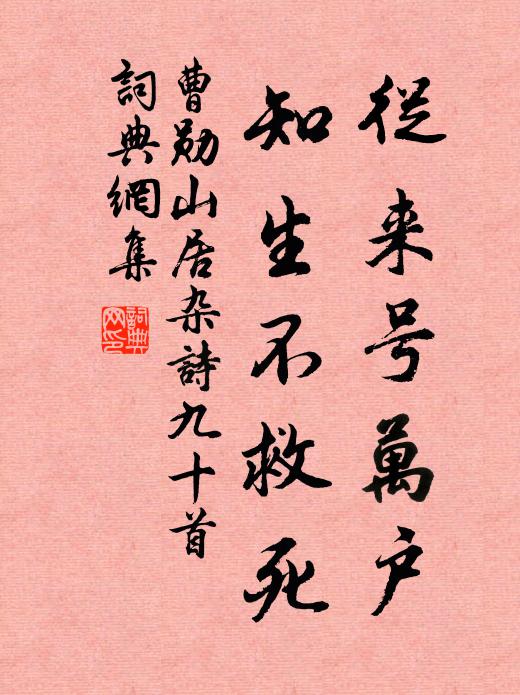 從来号萬户
知生不救死
曹勋山居杂詩九十首
詞典網集
詞典网印